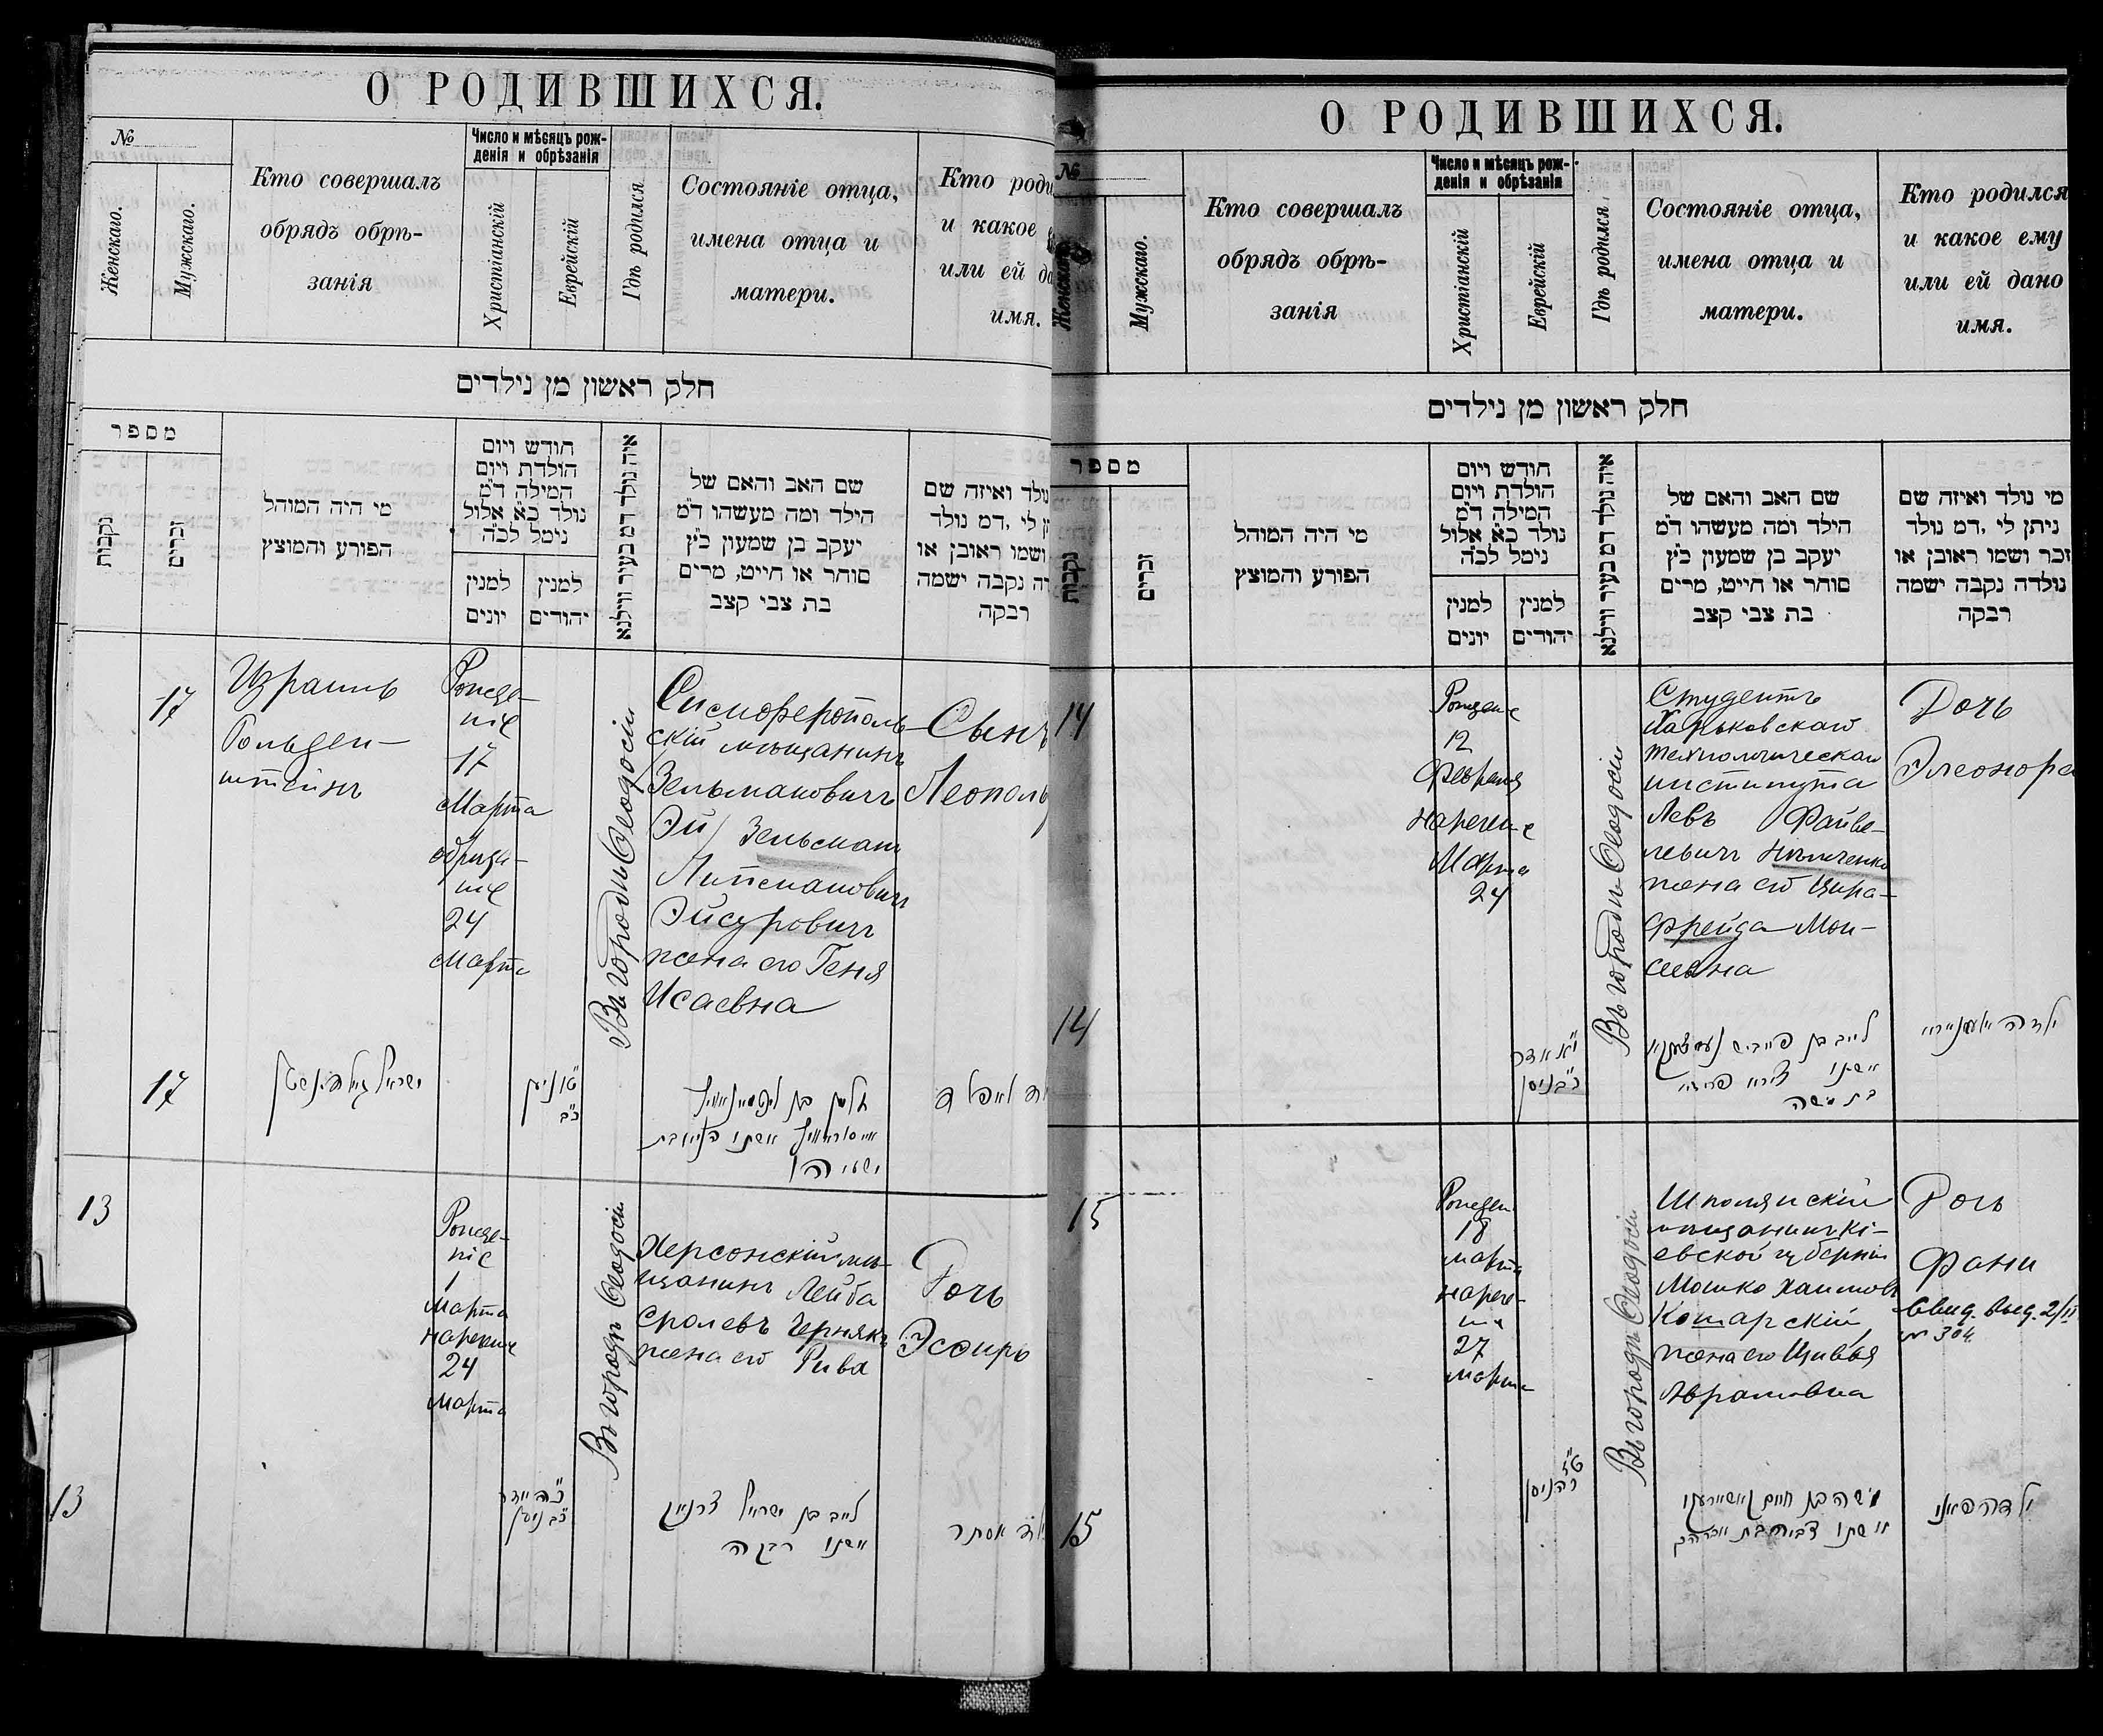 О РОДИВШИХСЯ.
№
Женскаго.
Мужскаго.
Кто совершалъ
обрядъ обрѣ-
занія
Число и мѣсяцъ рож-
денія и обрѣзанія
Христіанскій
Еврейскій
Гдѣ родился
Состояніе отца,
имена отца и
матери.
Кто роди
и какое
или ей да
имя.
חלק ראשון מן נילדים
מספר
נקבות
זכרים
מי היה המוהל
הפורע והמוצץ
חודש ויום
הולדת ויום
המילה ד״מ
נולד כ״א אלול
נימל לכ״ה
למנין
יונים
למנין
יהודים
איה נולד דמ בעיר ווילנא
שם האב והאם של
הילד ומה מעשהו ד״מ
יעקב בן שמעון כ״ץ
סוחר או חייט, מרים
בת צבי קצב
נולד ואיזה שם
ן לי ,דמ נולד
ושמו ראובן או
דה נקבה ישמה
רבקה
17
Израиль
Гольден-
штейнъ
Рожде-
ніе
17
Марта
обрѣза-
ніе
24
марта
Въ городѣ Ѳеодосіи
Симферополь-
скій мѣщанинъ
Зельмановичъ
Эй/ Зельманъ
Липмановичъ
Эйсуровичъ
жена его Геня
Исаевна
Сынъ
Леополь
17
13
Рожде-
ніе
1
марта
нареченіе
24
марта
Въ городѣ Ѳеодосіи
Херсонскій мѣ-
щанинъ Лейба
Сролевъ Чернякъ
жена его Рива
Дочь
Эсѳирь
13
לייב בן ישראל
אשתו רבקה
אסתר
О РОДИВШИХСЯ.
№
Женскаго
Мужскаго.
Кто совершалъ
обрядъ обрѣ-
занія
Число и мѣсяцъ рож-
денія и обрѣзанія
Христіанскій
Еврейскій
Гдѣ родился
Состояніе отца,
имена отца и
матери.
Кто родился
и какое ему
или ей дано
имя.
חלק ראשון מן נילדים
מספר
נקבות
זכרים
מי היה המוהל
הפורע והמוצץ
חודש ויום
הולדת ויום
המילה ד״מ
נולד כ״א אלול
נימל לכ״ה
למנין
יונים
למנין
יהודים
איה נולד דמ בעיר ווילנא
שם האב והאם של
הילד ומה מעשהו ד״מ
יעקב בן שמעון כ״ץ
סוחר או חייט, מרים
בת צבי קצב
מי נולד ואיזה שם
ניתן לי ,דמ נולד
זכר ושמו ראובן או
נולדה נקבה ישמה
רבקה
14
Рожденіе
12
Февраля
нареченіе
Марта
24
Въ городѣ Ѳеодосіи
Студентъ
Харьковскаго
технологическаго
института
Левъ Файве-
левичъ Нѣмченко
жена его Цира-
Фрейда Мои-
сеевна
Дочь
Элеонора
14
לייב בן פייביש
אשתו צירא פריידא
בת משה
15
Рожден
18
марта
нарече-
ніе
27
марта
Въ городѣ Ѳеодосіи
Шполянскій
мѣщанинъ Кі-
евской губерніи
Мошко Хаимовъ
Кошарскій,
жена его Цивья
Абрамовна
Дочь
Фани
Свид. выд. 2/II
№ 304
15
משה בן חיים
אשתו צביה בת אברהם
ילדה פאני